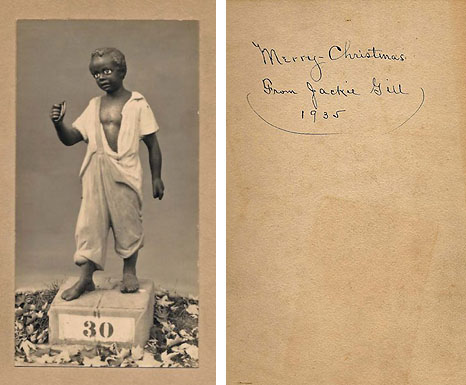 30
Merry-Christmas.
From Jackie Gill
1935